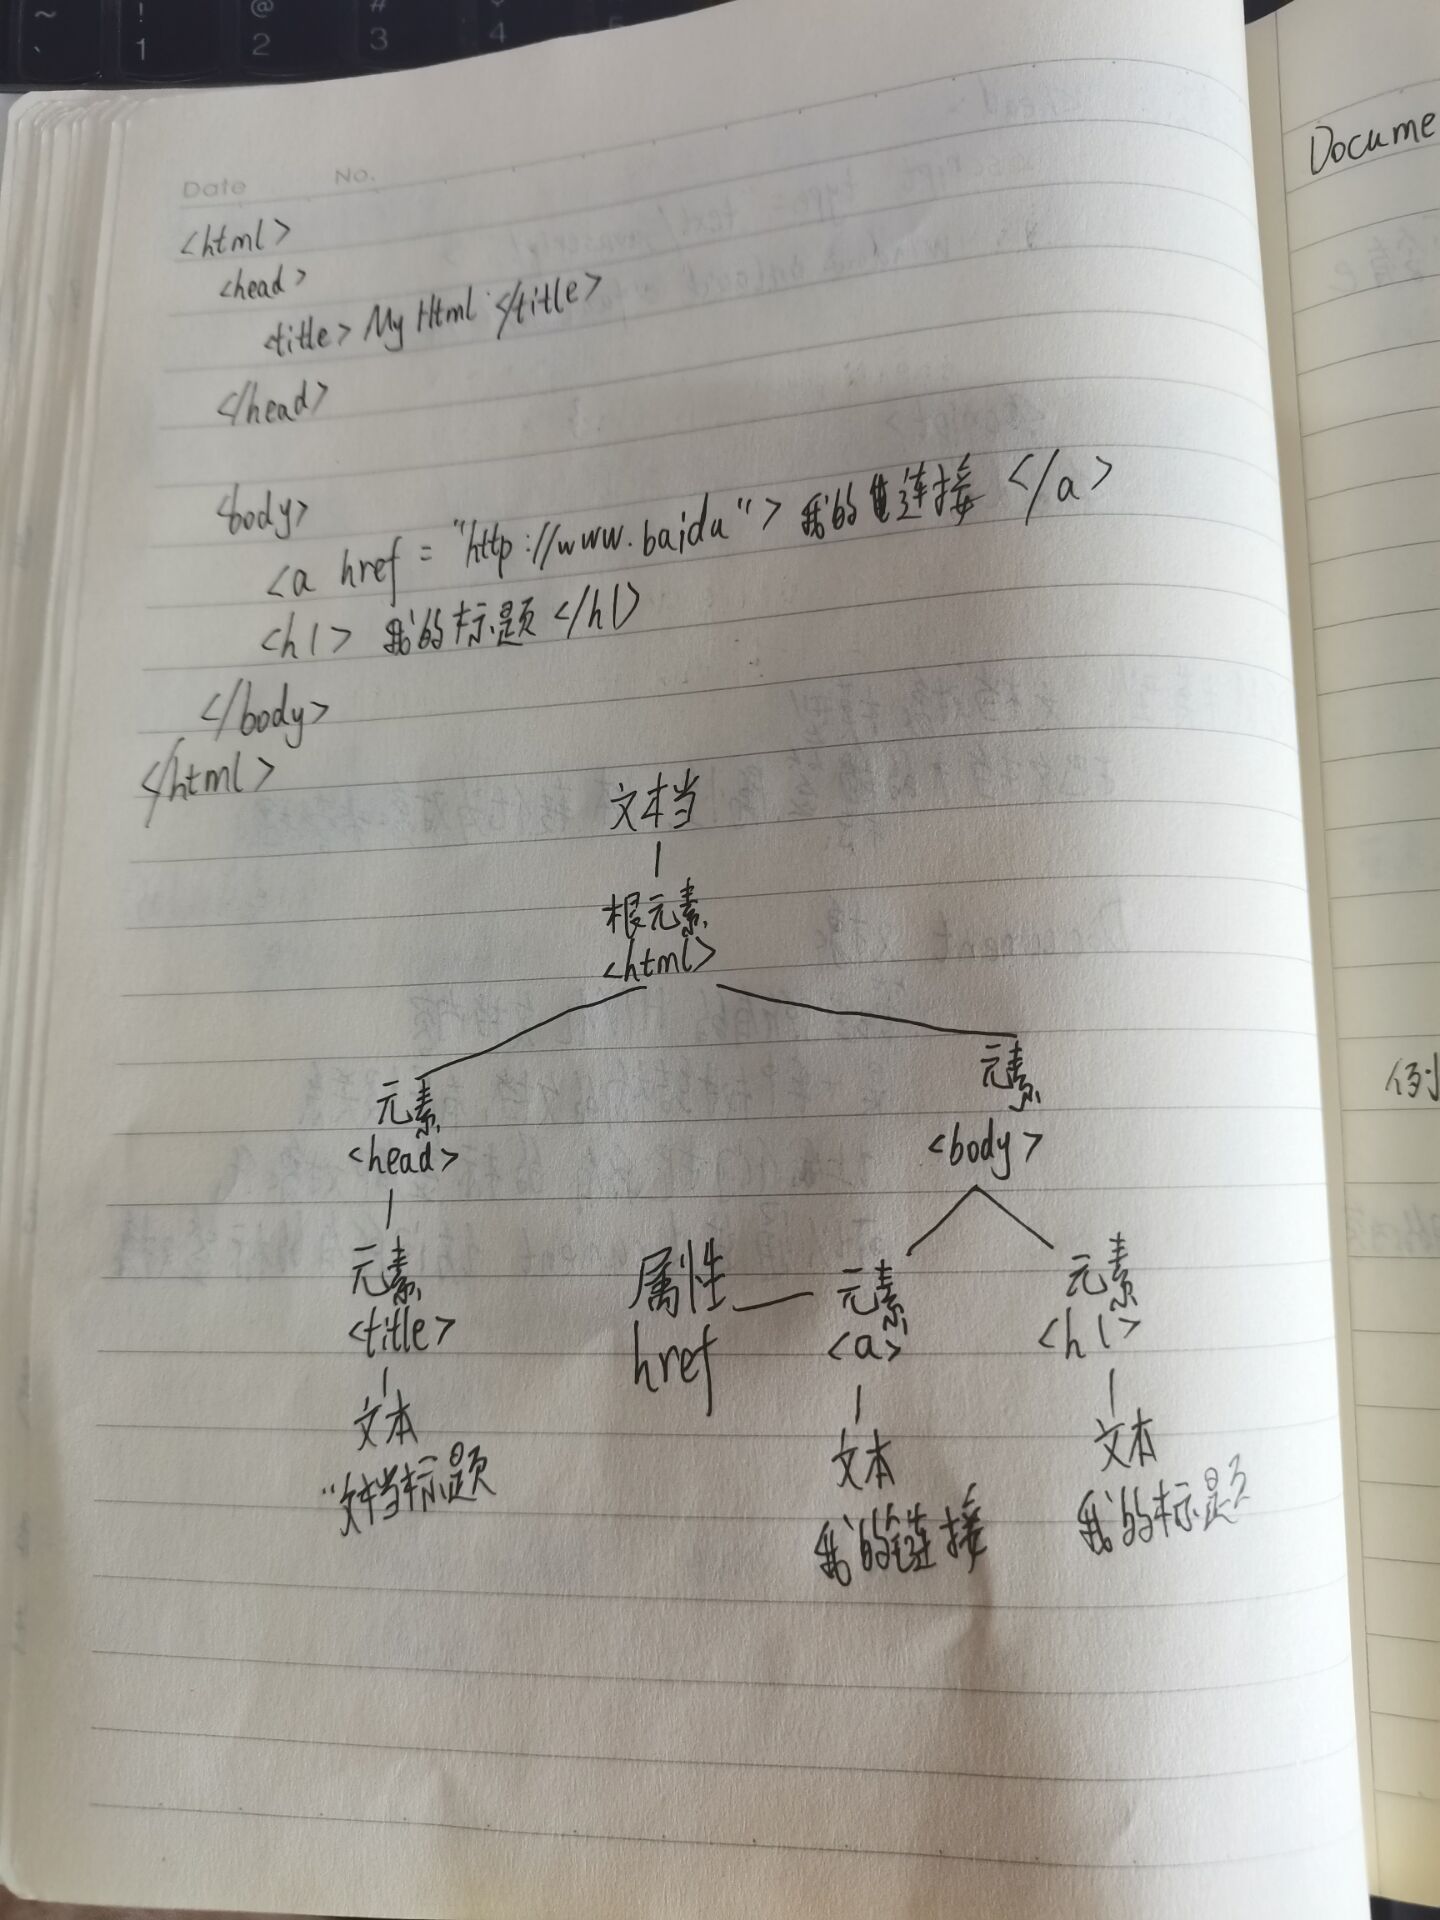 ~
!
@
#
`
1
2
3
4
5
Date No.
<html>
<head>
<title> My Html </title>
</head>
<body>
<a href = "http://www.baidu"> 我的连接 </a>
<h1> 我的标题 </h1>
</body>
</html>
文本当
根元素
<html>
元素
<head>
元素
<body>
元素
<title>
属性
href
元素
<a>
元素
<h1>
文本
"文本当标题
文本
我的链接
文本
我的标题
Docume
例